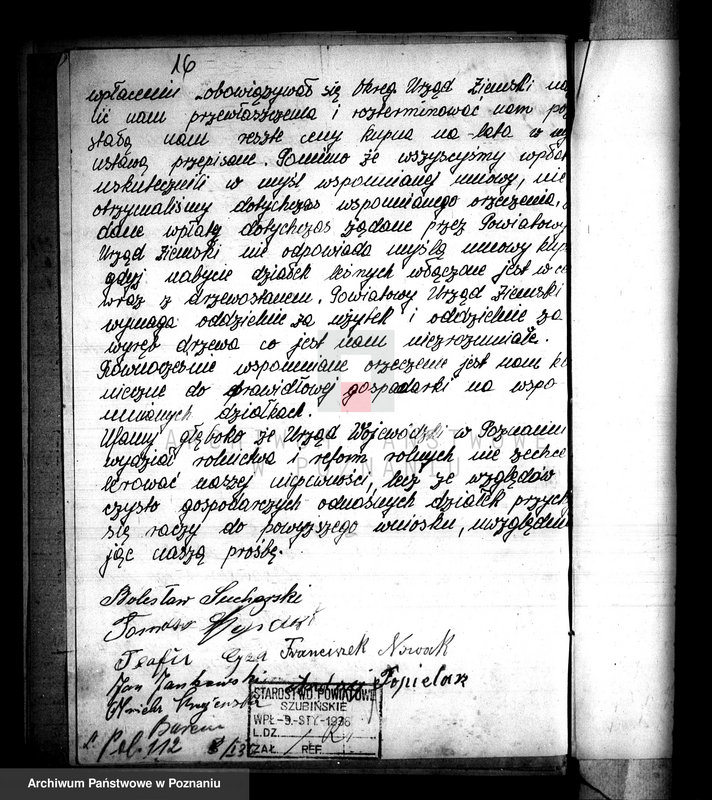 16
wpłaceniu obowiązywał się Okręg Urząd Ziemski
lić nam przewłaszczenia i rozterminować nam
stałą nam resztę ceny kupna na lata w
ustawą przepisane. Pomimo że wszyscyśmy
uskutecznili w myśl wspomnianej umowy, nie
otrzymaliśmy dotychczas wspomnianego orzeczenia,
dane wpłaty dotychczas żądane przez Powiatowy
Urząd Ziemski nie odpowiada myślą umowy
gdyż nabycie działek leśnych włączone jest
wraz z drzewostanem. Powiatowy Urząd Ziemski
wymaga oddzielnie za użytek i oddzielnie za
wyręb drzewa co jest nam niezrozumiałe.
Równocześnie wspomniane orzeczenie jest nam ko
nieczne do prawidłowej gospodarki na wspo-
mnianych działkach.
Ufamy głęboko że Urząd Wojewódzki w Poznaniu
wydział rolnictwa i reform rolnych nie zechce
naszej lecz ze względów
czysto gospodarczych odnośnych działek przych
się raczy do powyższego wniosku, uwzględnia
jąc naszą prośbę.
Bolesław Sucharski
Teofil Franciszek Nowak
Jan Jankowski Topielan
Barcin
STAROSTWO POWIATOWE
SZUBIŃSKIE
WPŁ-9.-STY-1936
L.DZ.
ZAŁ. REF.
Pol. 112
ARCHIWUM PAŃSTWOWE
W POZNANIU
Archiwum Państwowe w Poznaniu